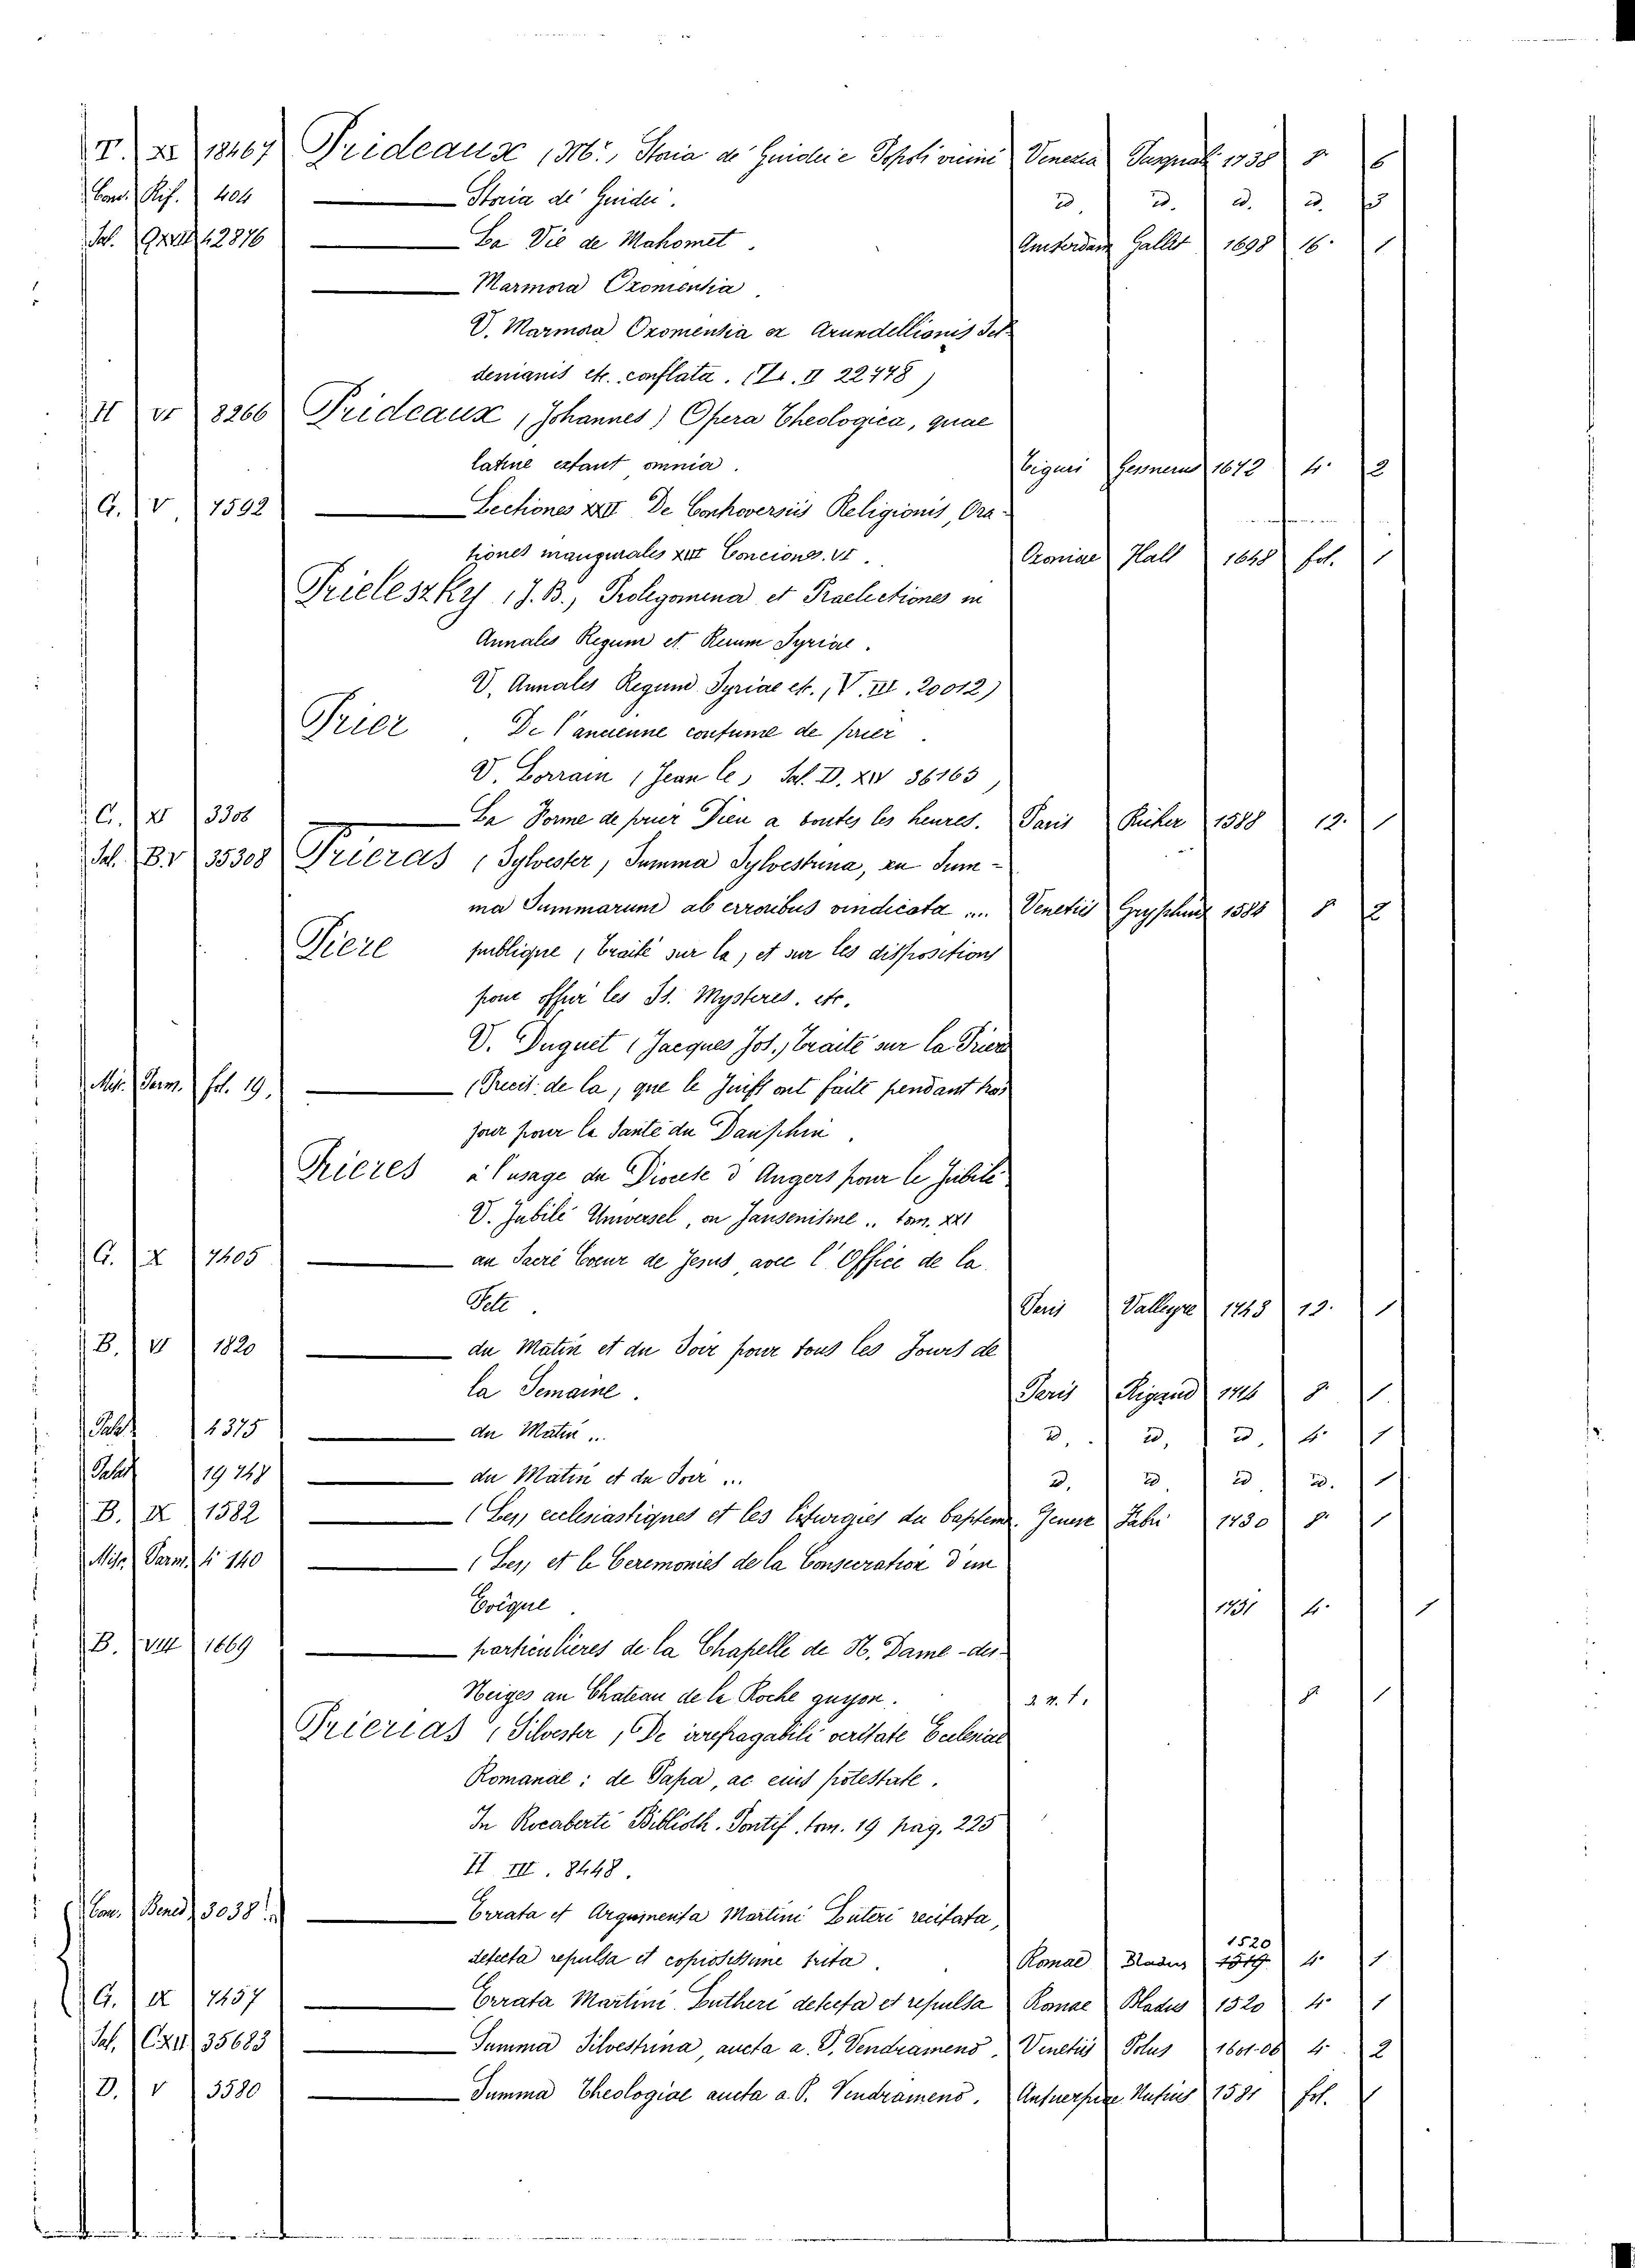 T. XI 18467 Prideaux (Mr., Storia de' Guidei e Popoli vicini Venezia Pasquali 1738 8° 6
Cons. Rif. 404 — Storia de' Guidei. id. id. id. id. 3
Sal. 42876 — La Vie de Mahomet. Amsterdam Gallet 1698 16° 1
— Marmora Oxomentia.
V. Marmora Oxomentia ex Arundellionis Sel
denianis etc. conflata. II 22448)
H VI 8266 Prideaux (Johannes) Opera Theologica, quae
latine extant omnia. Tiguri Gesnerus 1672 4° 2
G. V. 7592 — Lectiones XXII De Controversiis Religionis, Ora-
tiones inaugurales XIII Conciones. VI. Oxoniae Hall 1648 fol. 1
Prieleszky (J. B.) Prolegomena et Praelectiones in
Annales Regum et Rerum Syriae.
V. Annales Regum Syriae etc. (V. III. 20012)
Prier. De l'ancienne coutume de prier.
V. Lorrain (Jean le) Sal. D. XIV 36163
C. XI 3306 — La Forme de prier Dieu a toutes les heures. Paris Richer 1588 12. 1
Sal. B. V 35308 Prieras (Sylvester) Summa Sylvestrina, an Sum-
ma Summarum ab erroribus vindicata ... Venetiis Gryphius 1584 8 2
Piere publique (Traité sur la) et sur les dispositions
pour offrir les St. Mysteres. etc.
V. Duguet (Jacques Jos.) Traité sur la Priere
Mss. Parm. fol. 19. — (Precis de la, que le Juifs ont faite pendant trois
jour pour la Santé du Dauphin.
Prieres à l'usage du Diocese d'Angers pour le Jubilé
V. Jubilé Universel, on Jansenisme .. tom. XXI
G. X 7405 — au Sacré Coeur de Jesus avec l'Office de la
Fete. Paris Valleyre 1748 12. 1
B. VI 1820 — du Matin et du Soir pour tous les Jours de
la Semaine. Paris Rigaud 1716 8° 1
Palat 4375 — du Matin ... id. id. id. 4° 1
Palat 19748 — du Matin et du Soir ... id. id. id. id. 1
B. IX 1582 — (Les) ecclesiastiques et les Liturgies du bapteme. Geneve Fabri 1730 8° 1
Misc. Parm. 4° 140 — (Les) et le Ceremonies de la Consecration d'un
Evêque 1731 4° 1
B. VIII 1669 — particulières de la Chapelle de N. Dame-des-
Neiges au Chateau de la Roche guyon. a. n. t. 8° 1
Prierias (Silvester) De irrefragabili veritate Ecclesiae
Romanae: de Papa, ac eius potestate.
In Rocaberti Biblioth. Pontif. tom. 19 pag. 225
H III. 8448.
Con. Bened. 3038 — Errata et Argumenta Martini Luteri recitata,
detecta repulsa et copiosissime trita. Romae Bladus 1519 1520 4° 1
G. IX 7457 — Errata Martini Lutheri detecta et repulsa Romae Bladus 1520 4° 1
Sal. C XII 35683 — Summa Silvestrina, aucta a. P. Vendrameno. Venetiis Polus 1601-06 4° 2
D. V 3580 — Summa Theologiae aucta a. P. Vendrameno. Antuerpiae Nutius 1581 fol. 1